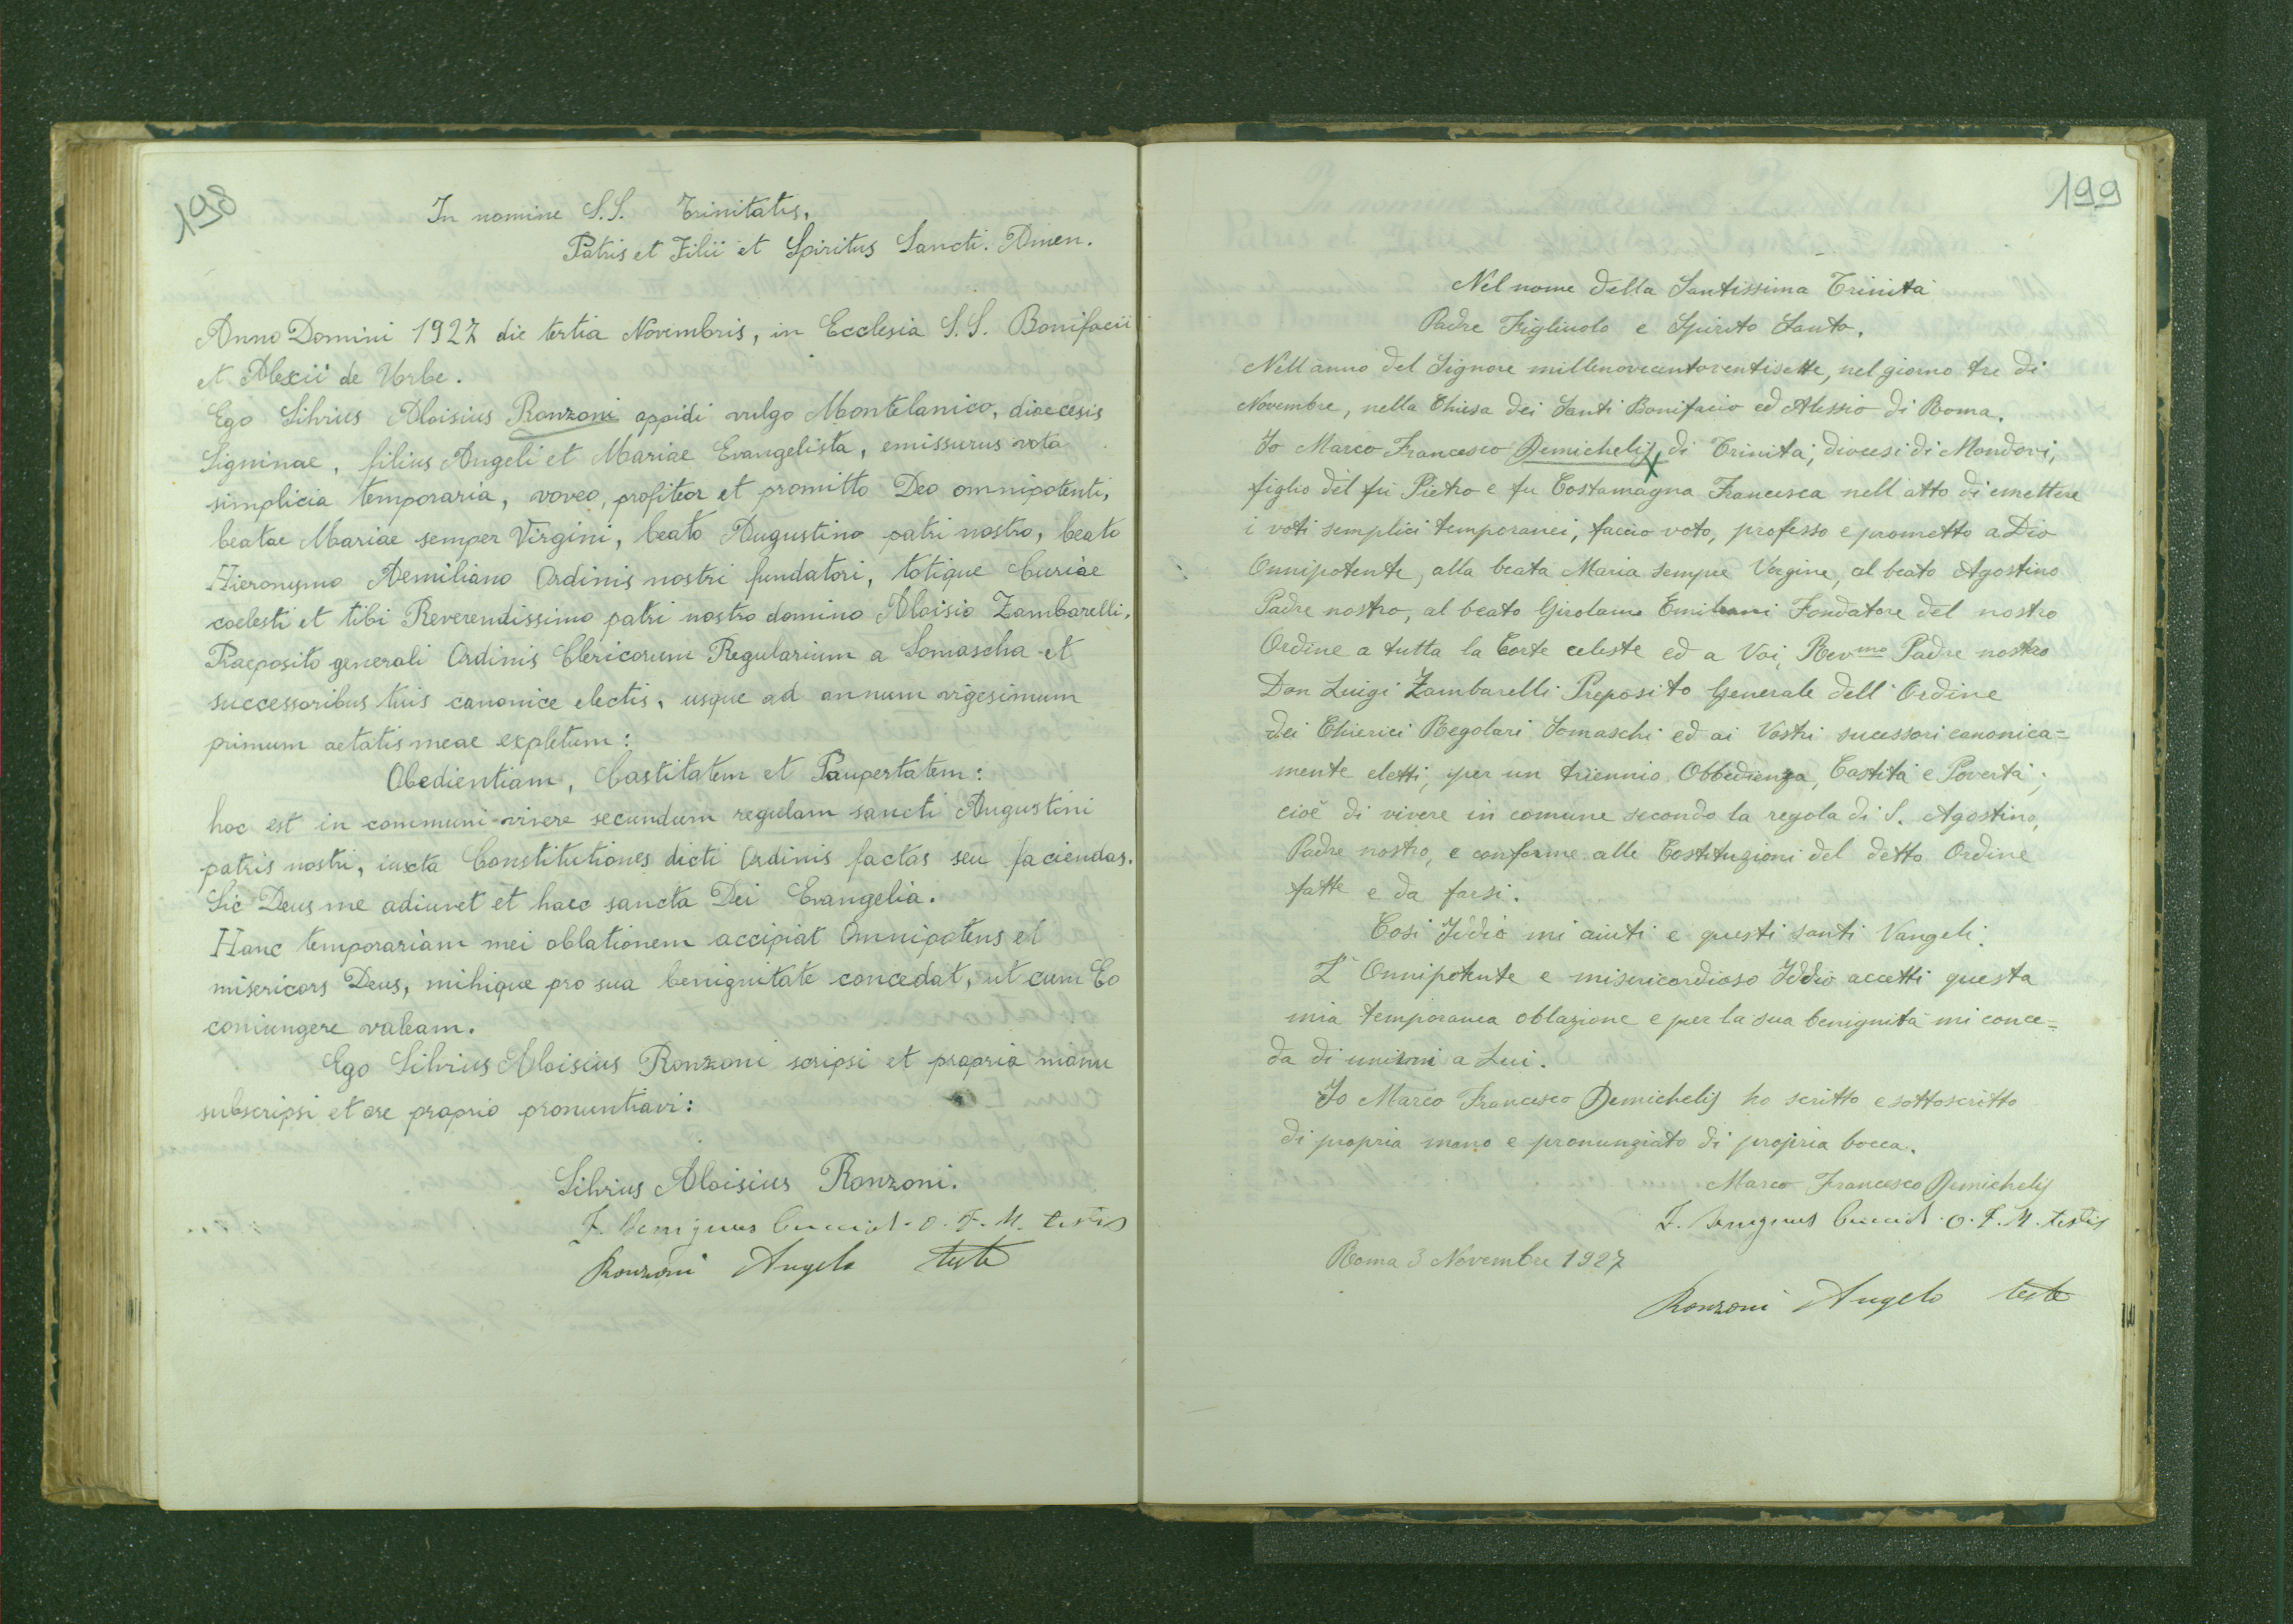 198
In nomine S.S. Trinitatis,
Patris et Filii et Spiritus Sancti. Amen.
Anno Domini 1927 die tertia Novembris, in Ecclesia S.S. Bonifacii
et Alexii de Urbe.
Ego Silvius Aloisius Ronzoni oppidi vulgo Montelanico, dioecesis
Signinae, filius Angeli et Mariae Evangelista, emissurus vota
simplicia temporaria, voveo, profiteor et promitto Deo omnipotenti,
beatae Mariae semper Virgini, beato Augustino patri nostro, beato
Hieronymo Aemiliano Ordinis nostri fundatori, totique Curiae
coelesti et tibi Reverendissimo patri nostro domino Aloisio Zambarelli,
Praeposito generali Ordinis Clericorum Regularium a Somascha et
successoribus tuis canonice electis, usque ad annum vigesimum
primum aetatis meae expletum:
Obedientiam, Castitatem et Paupertatem:
hoc est in communi vivere secundum regulam sancti Augustini
patris nostri, iuxta Constitutiones dicti Ordinis factas seu faciendas.
Sic Deus me adiuvet et haec sancta Dei Evangelia.
Hanc temporariam mei oblationem accipiat Omnipotens et
misericors Deus, mihique pro sua benignitate concedat, ut cum Eo
coniungere valeam.
Ego Silvius Aloisius Ronzoni scripsi et propria manu
subscripsi et ore proprio pronuntiavi:
Silvius Aloisius Ronzoni.
F. Benignus O. F. M. testis
Ronzoni Angelo teste
199
Nel nome della Santissima Trinità
Padre Figliuolo e Spirito Santo.
Nell'anno del Signore millenovecentoventisette, nel giorno tre di
Novembre, nella Chiesa dei Santi Bonifacio ed Alessio di Roma.
Io Marco Francesco Demichelis, di Trinità, diocesi di Mondovì,
figlio del fu Pietro e fu Costamagna Francesca nell'atto di emettere
i voti semplici temporanei, faccio voto, professo e prometto a Dio
Onnipotente, alla beata Maria sempre Vergine, al beato Agostino
Padre nostro, al beato Girolamo Emiliani Fondatore del nostro
Ordine a tutta la Corte celeste ed a Voi, Rev.mo Padre nostro
Don Luigi Zambarelli Preposito Generale dell'Ordine
dei Chierici Regolari Somaschi ed ai Vostri sucessori canonica=
mente eletti, per un triennio Obbedienza, Castità e Povertà;
cioè di vivere in comune secondo la regola di S. Agostino,
Padre nostro, e conforme alle Costituzioni del detto Ordine
fatte e da farsi.
Così Iddio mi aiuti e questi santi Vangeli.
L'Onnipotente e misericordioso Iddio accetti questa
mia temporanea oblazione e per la sua benignità mi conce=
da di unirmi a Lui.
Io Marco Francesco Demichelis ho scritto e sottoscritto
di propria mano e pronunziato di propria bocca.
Marco Francesco Demichelis
F. Benignus O. F. M. testis
Roma 3 Novembre 1927
Ronzoni Angelo teste